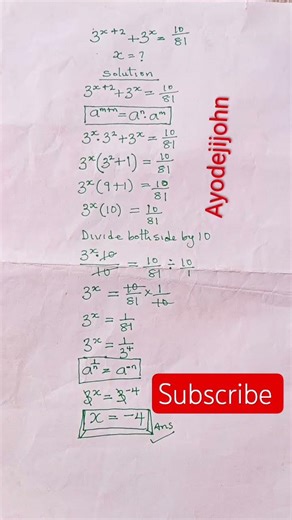 3^(x+2) + 3^x = 10/81
x = ?
Solution
3^(x+2) + 3^x = 10/81
a^(m+n) = a^n · a^m
3^x · 3^2 + 3^x = 10/81
3^x (3^2 + 1) = 10/81
3^x (9 + 1) = 10/81
3^x (10) = 10/81
Divide both side by 10
3^x · 10/10 = 10/81 ÷ 10/1
3^x = 10/81 × 1/10
3^x = 1/81
3^x = 1/3^4
a^(1/n) = a^(-n)
3^x = 3^(-4)
x = -4 Ans
Ayodejijohn
Subscribe